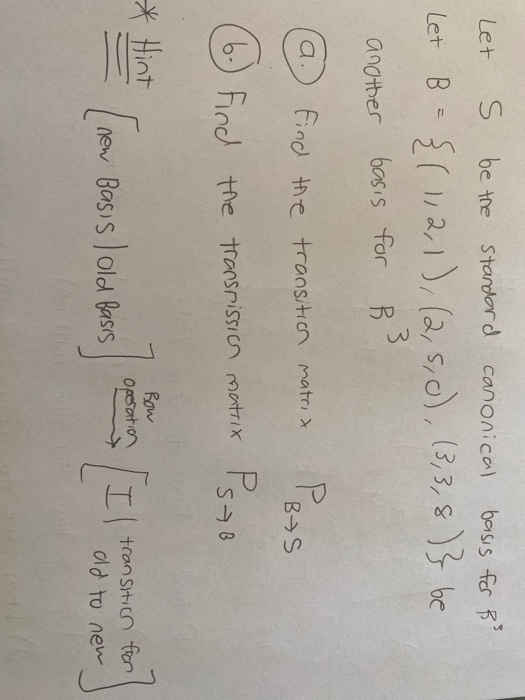 Let S be the standard canonical basis for B³
Let B = {(1,2,1), (2,5,0), (3,3,8)} be
another basis for B³
a. Find the transition matrix P B→S
b. Find the transmission matrix P S→B
* Hint [new Basis | old Basis] Row operation → [I | transition from old to new]